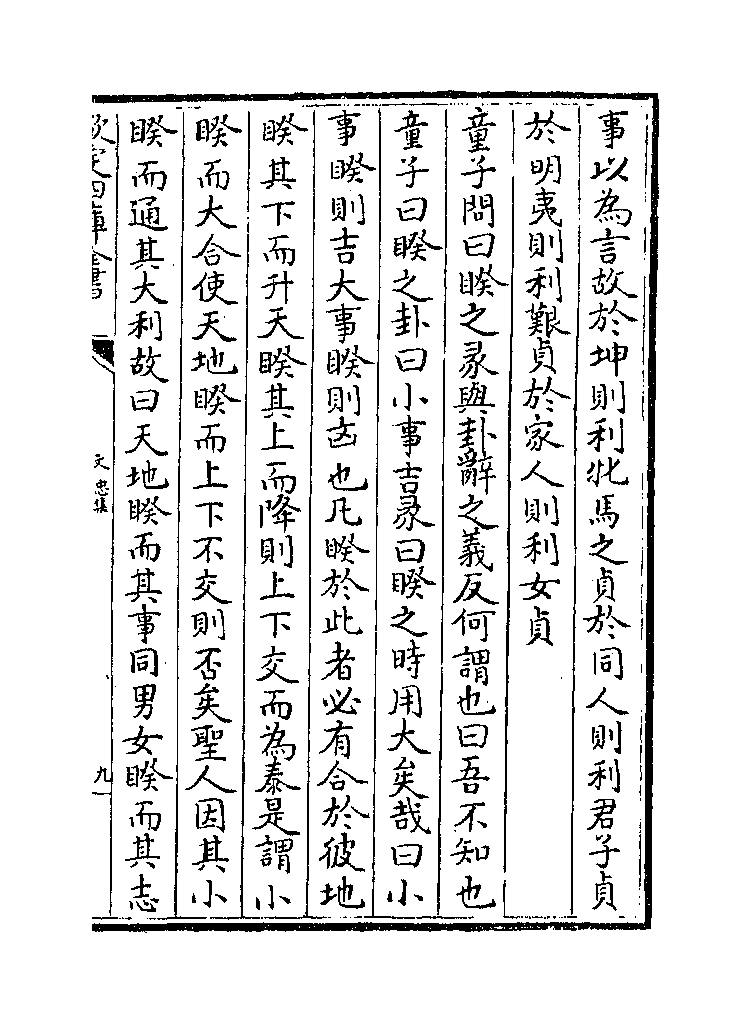 事以為言故於坤則利牝馬之貞於同人則利君子貞
於明夷則利艱貞於家人則利女貞
童子問曰睽之彖與卦辭之義反何謂也曰吾不知也
童子曰睽之卦曰小事吉彖曰睽之時用大矣哉曰小
事睽則吉大事睽則凶也凡睽於此者必有合於彼地
睽其下而升天睽其上而降則上下交而為泰是謂小
睽而大合使天地睽而上下不交則否矣聖人因其小
睽而通其大利故曰天地睽而其事同男女睽而其志
欽定四庫全書
文忠集
九